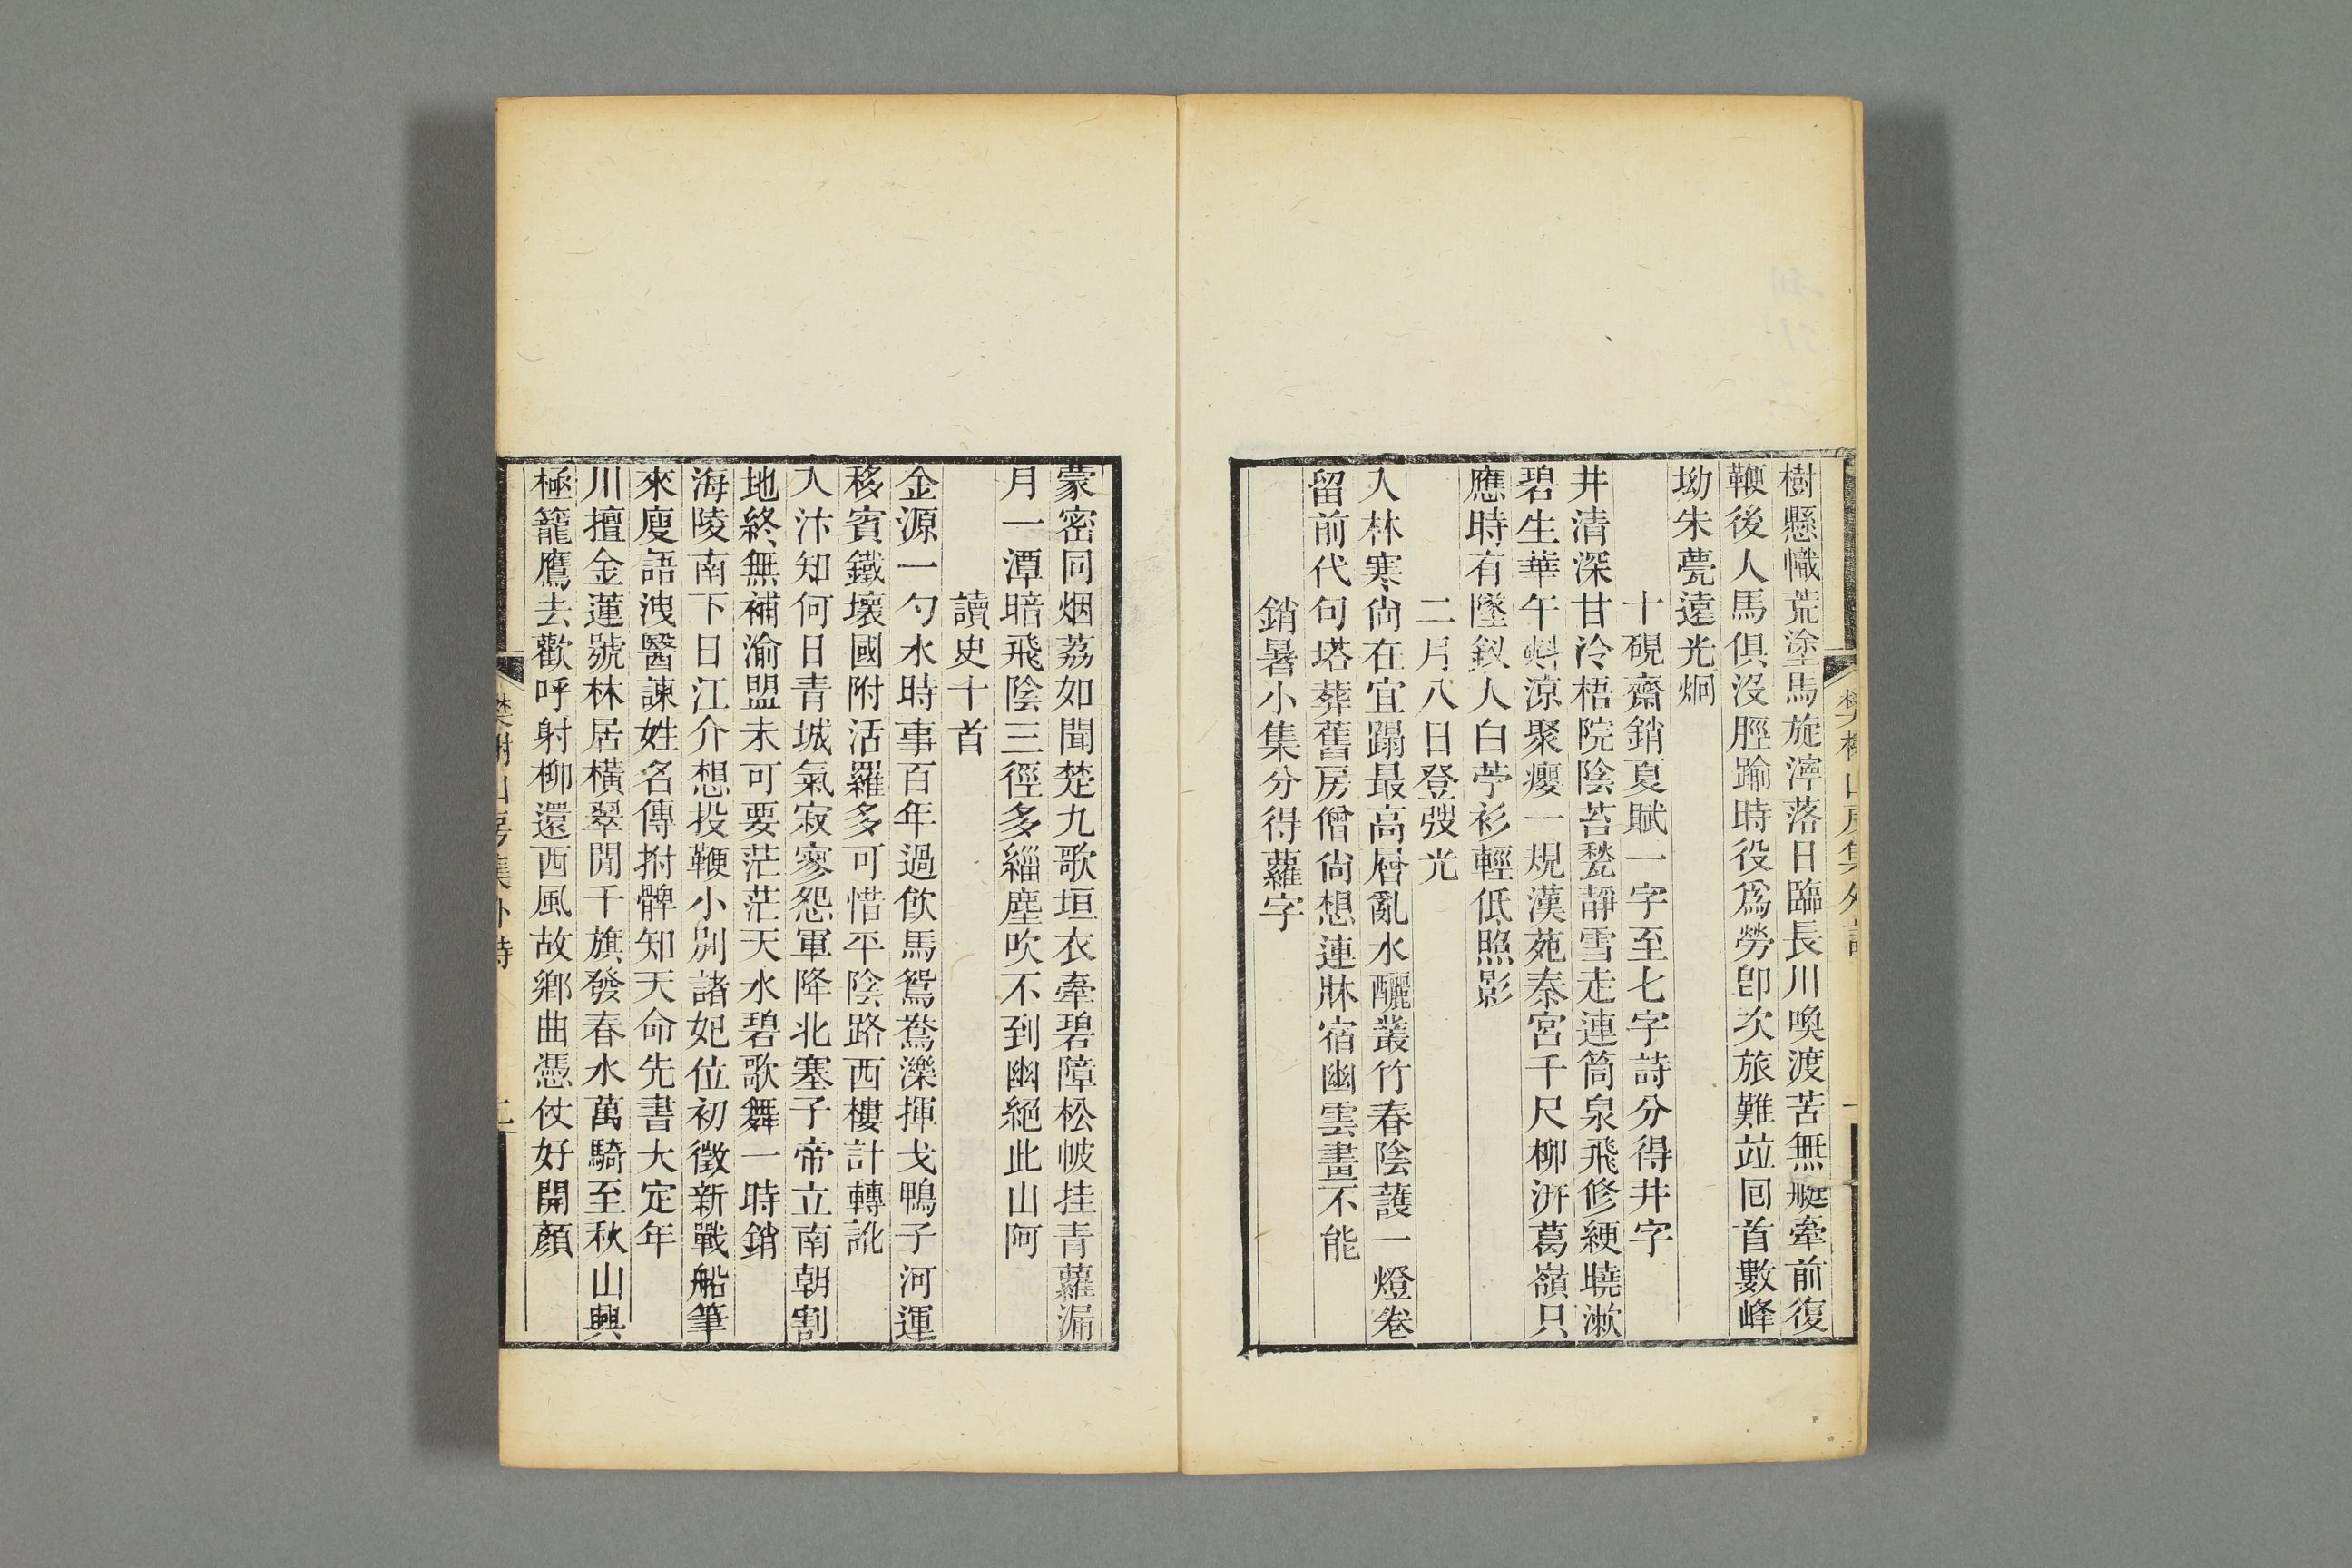 樹懸幟荒塗馬旋濘落日臨長川喚渡苦無艇牽前復
鞭後人馬俱沒脛踰時役爲勞卽次旅難竝回首數峰
坳朱甍遠光炯
十硯齋銷夏賦一字至七字詩分得井字
井清深甘冷梧院陰苔甃靜雪走連筒泉飛修綆曉漱
碧生華午斟涼聚癭一規漢苑秦宮千尺柳汧葛嶺只
應時有墜釵人白苧衫輕低照影
二月八日登弢光
入林寒尙在宜蹋最高層亂水釃叢竹春陰護一燈卷
留前代句塔葬舊房僧尙想連牀宿幽雲畫不能
銷暑小集分得蘿字
蒙密同烟荔如聞楚九歌垣衣牽碧障松帔挂青蘿漏
月一潭暗飛陰三徑多緇塵吹不到幽絕此山阿
讀史十首
金源一勺水時事百年過飲馬鴛鴦濼揮戈鴨子河運
移賓鐵壞國附活羅多可惜平陰路西樓計轉訛
入汴知何日青城氣寂寥怨軍降北塞子帝立南朝割
地終無補渝盟未可要茫茫天水碧歌舞一時銷
海陵南下日江介想投鞭小別諸妃位初徵新戰船筆
來廋語洩醫諫姓名傳拊髀知天命先書大定年
川擅金蓮號林居橫翠閒千旗發春水萬騎至秋山興
極籠鷹去歡呼射柳還西風故鄉曲憑仗好開顏
樊榭山房集外詩
二